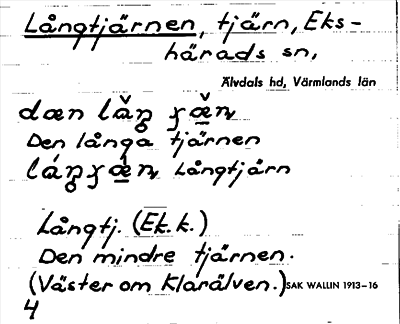 Långtjärnen, tjärn, Eks-
härads sn,
Älvdals hd, Värmlands län
Den långa tjärnen
Långtjärn
Långtj. (Ek. k.)
Den mindre tjärnen.
(Väster om Klarälven.) SAK WALLIN 1913-16
4